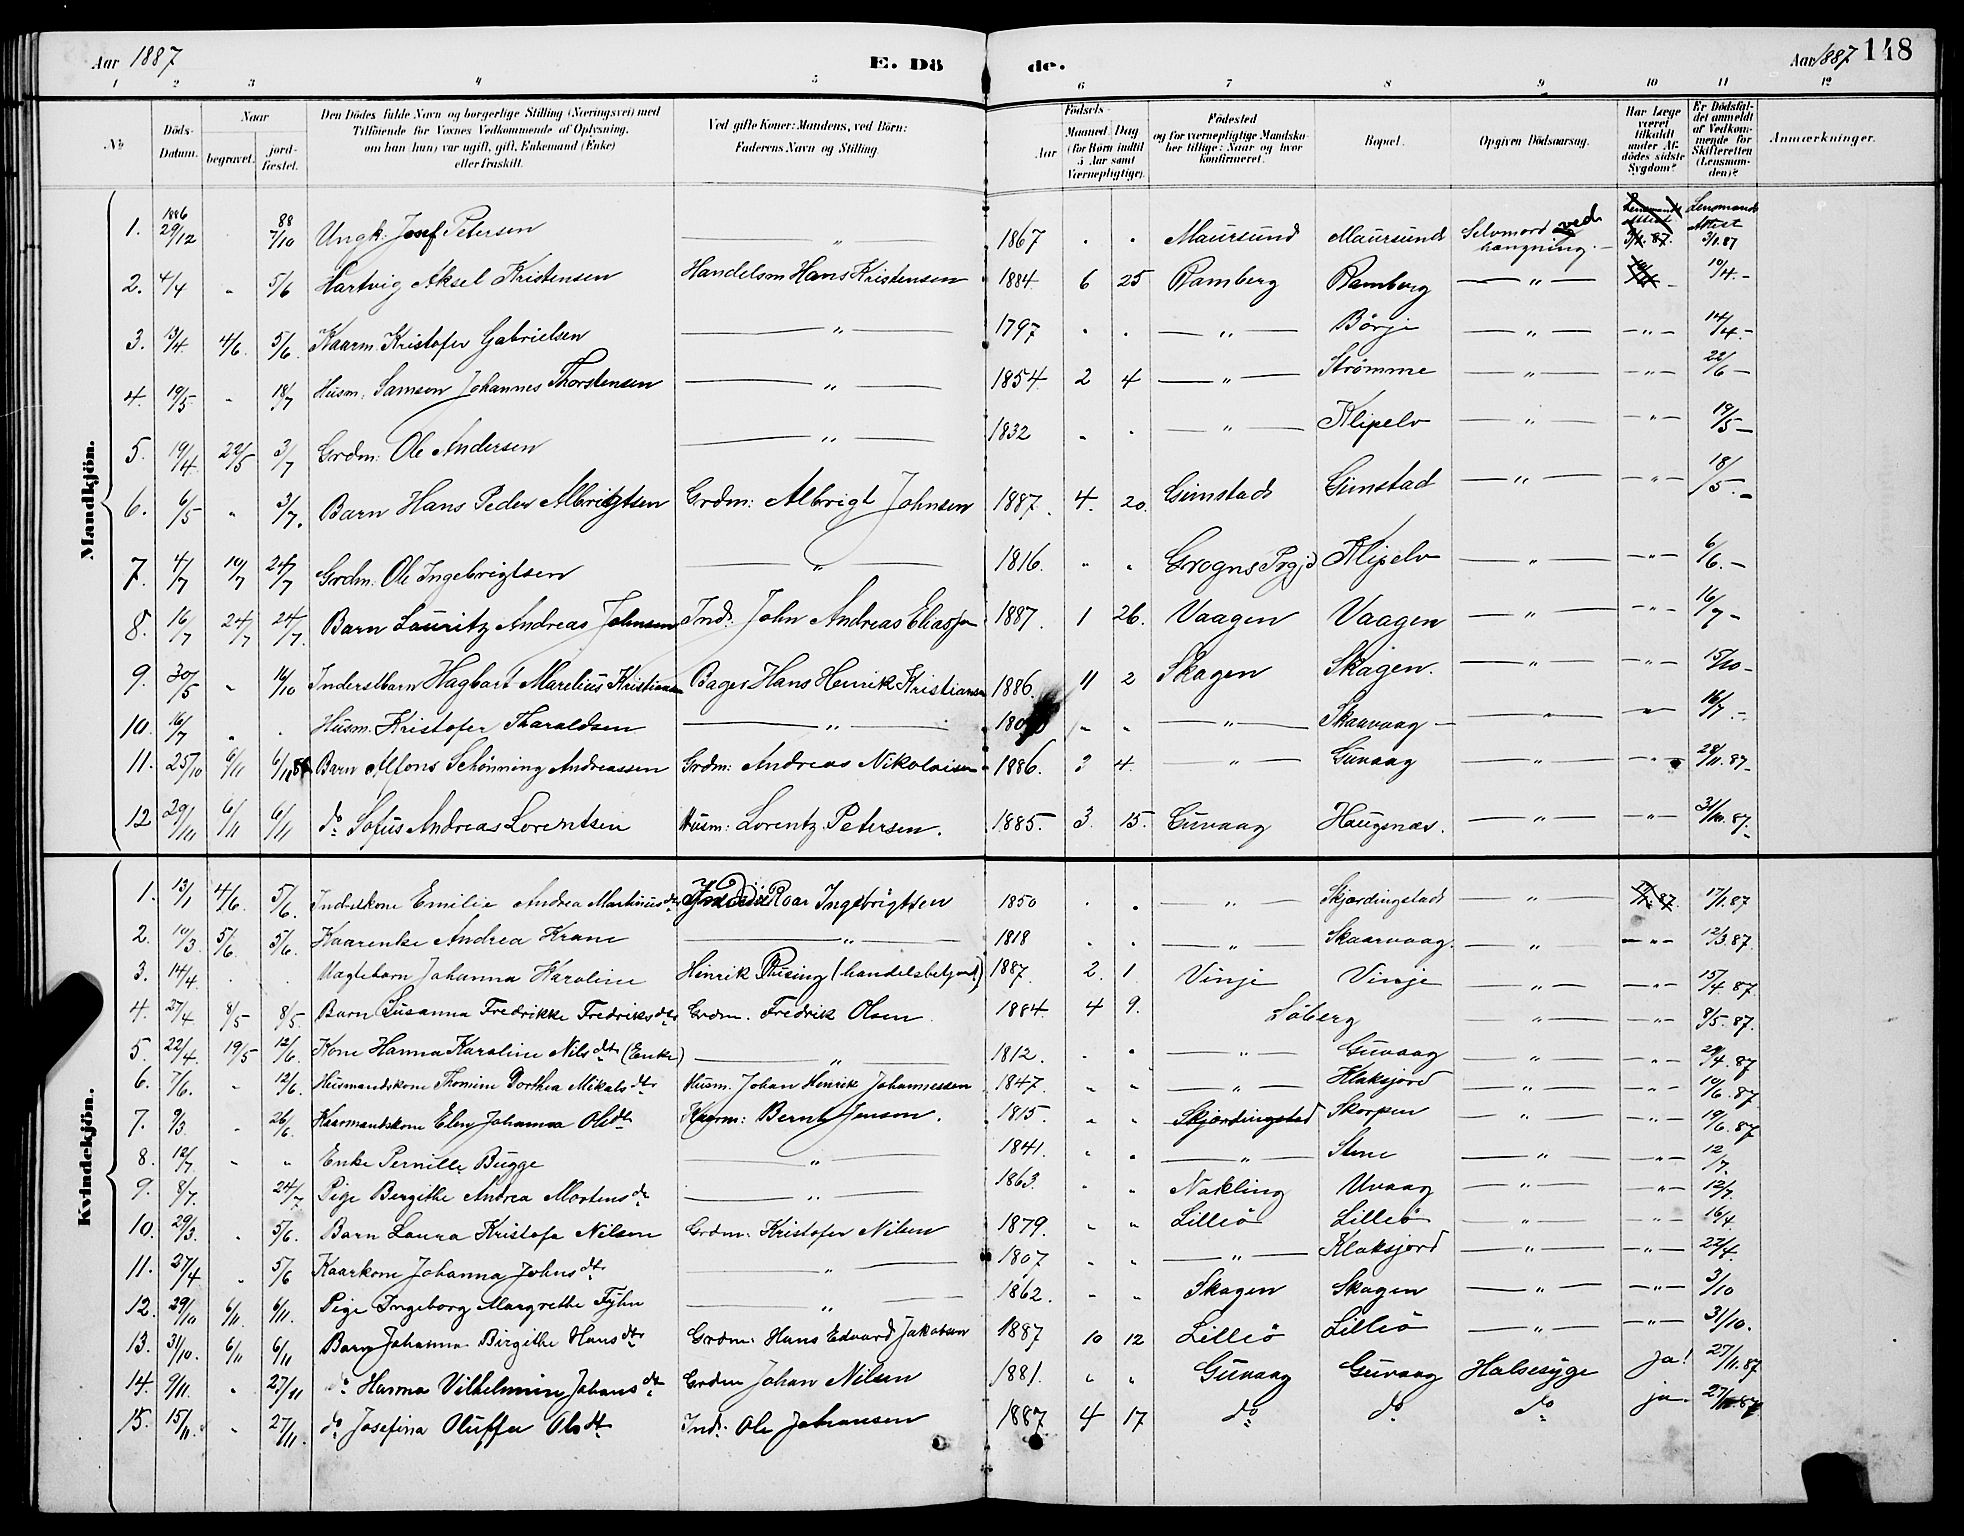 Aar 1887 E. Dö
de. Aar 1887 148
1 2 3 4 5 6 7 8 9 10 11 12
No
Döds-Datum.
Naar
begravet.
jord-fæstet.
Den Dödes fulde Navn og borgerlige Stilling (Næringsvei) med
Tilföiende for Voxnes Vedkommende af Oplysning,
om han (hun) var ugift, gift, Enkemand (Enke)
eller fraskilt.
Ved gifte Koner: Mandens, ved Börn:
Faderens Navn og Stilling.
Födsels-
Aar
Maaned Dag
(for Börn indtil 5 Aar samt Værnepligtige).
Födested
og for værnepligtige Mandskaber tillige: Naar og hvor konfirmeret.
Bopæl.
Opgiven Dödsaarsag.
Har Læge været tilkaldt under Afdödes sidste Sygdom?
Er Dödsfaldet anmeldt af Vedkommende for Skifteretten (Lensmanden)?
Anmærkninger.
Mandkjön.
1. 1886 29/12 88 7/10 Ungk. Josef Petersen " 1867 " " Maursund Maursund Selvmord ved hængning. Lensmands Attest 3/1.87 Lensmands Attest 3/1.87
2. 4/4 " 5/6 Hartvig Aksel Kristensen Handelsm Hans Kristensen 1884 6 25 Ramberg Ramberg " 10/4.-
3. 13/4. 4/6. 5/6. Kaarm. Kristofer Gabrielsen " 1797 . . " Börje " " 14/4.-
4. 19/5 " 18/7 Husm. Samson Johannes Thorstensen " 1854. 2 4 " Strömme " " 22/6 -
5. 19/4. 22/5 3/7 Grdm. Ole Andersen " 1832 . . " Klipelv " " 19/5-
6. 6/5 " 3/7. Barn Hans Peder Albrigtsen Grdm: Albrigt Johnsen 1887. 4. 20. Gimstad Gimstad " " 18/5.-
7. 4/7 10/7 24/7 Grdm. Ole Ingebrigtsen " 1816. " " Grogns Prgjd Klipelv " " 6/6.-
8. 16/7 24/7 24/7. Barn Lauritz Andreas Johnsen Ind. John Andreas Eliassen 1887. 1 26. Vaagen Vaagen " " 16/7-
9. 30/5 " 16/10 Inderstbarn Hagbart Marelius Kristiansen Bager Hans Henrik Kristiansen 1886. 11 2 Skagen Skagen. " " 15/10-
10. 16/7 " . Husm. Kristofer Tharaldsen " " " " Skaarvaag " " 16/7.-
11. 25/10 6/11 6/11 Barn Alfons Schönning Andreassen Grdm: Andreas Nikolaisen 1886. 3 4. " Guvaag " " 28/11.87-
12 29/11 6/11 6/11 do Sofus Andreas Lorentsen Husm: Lorentz Petersen. 1885. 3. 15. Guvaag Haugsnæs. " " 31/10.87.-
Kvindekjön.
1. 13/1 4/6. 5/6. Inderstkone Emilie Andrea Martinusdtr Roar Ingebrigtsen 1850 . . " Skjørdingstad " 17/1.87
2. 10/3. 5/6. 5/6. Kaarenke Andrea Krane " 1818 " " " Skaarvaag. " " 12/3.87.
3. 14/4. . . Uægtebarn Johanna Karoline Hinrik Rusing (handelsbetjent) 1887. 2. 1. Vinje Vinje " " 15/4.87.
4. 27/4 8/5 8/5. Barn Susanna Fredrikke Fredriksdtr Grdm. Fredrik Olsen 1884. 4 9. Löberg " " 8/5.87.
5. 22/4. 19/5 12/6. Kone Hanna Karoline Nilsdtr (Enke) " 1812. " " " Guvaag " " 29/4.87
6. 7/6. " 12/6. Husmandskone Thomine Dorthea Mikalsdtr Husm. Johan Henrik Johannessen 1847. " " " Klaksjord " " 10/6.87.
7. 9/3. " 26/6. Kaarmandskone Elen Johanna Olsdtr Kaarm: Bernt Jenson. 1815. " " Skjørdingstad Skorpen " " 19/6.87
8. 12/7. " " Enke Pernille Bugge " 1841. " " " Stene " " 12/7.
9. 8/7. 24/7 Pige Birgithe Andrea Mortensdtr " 1863. " " Nakling Uvaag " " 12/7.
10. 29/3. . 5/6. Barn Laura Kristofa Nilson Grdm. Kristofer Nilsen 1879. " " Lilleö Lilleö " " 16/4.
11. 27/4 " 5/6 Kaarkone Johanna Johnsdtr " 1807 " " " Klaksjord " " 22/4.
12. 29/10 6/11. 6/11. Pige Ingeborg Margrethe Tyhn " 1862. " " Skagen Skagen " " 3/10
13. 31/10. 6/11 6/11 Barn Johanna Birgithe Hansdtr Grdm: Hans Edvard Jakobsen 1887 10 12 Lilleö Lilleö " " 31/10.
14. 9/11. " 27/11 do Hanna Vilhelmine Johansdtr Grdm Johan Nilsen 1881. " " Guvaag Guvaag Halsesyge ja! 27/11.87
15. 15/11. " 27/11. do Josefina Oluffa Olsdtr Ind. Ole Johansen 1887 4 17 do do do ja. 27/11 87